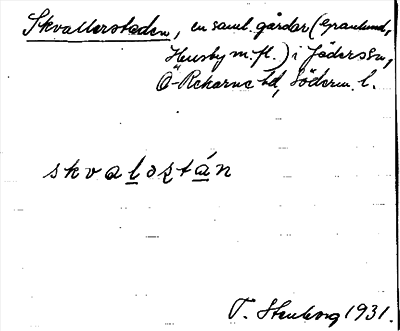 Skvallerstaden, en saml. gårdar (Granlund,
Husby m.fl.) i Jäders sn,
Ö-Rekarne hd, Söderm. l.
skvalostán
T. Stenborg 1931.